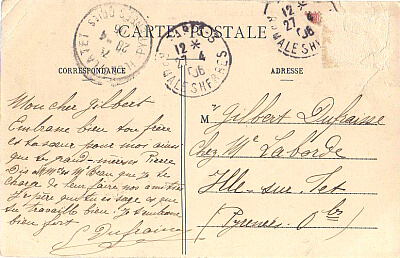 CARTE POSTALE
CORRESPONDANCE
ADRESSE
12
27 4
06
12
27 4
06
Mon cher Gilbert
Embrasse bien ton frère
et ta sœur pour moi ainsi
que ta grand-mère Pierre
Dis à Mme et Mr Beau que je te
charge de leur faire nos amitiés
J'espère que tu es sage et que
tu travailles bien. Je t'embrasse
bien fort
Dufraisse
Mr Gilbert Dufraisse
chez Mr Laborde
Ille-sur-Tet
(Pyrénées-Oles)